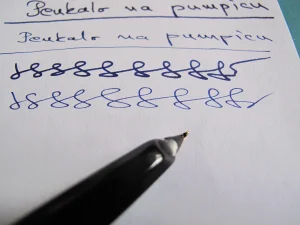 Penkalo na pumpicu
Penkalo na pumpicu